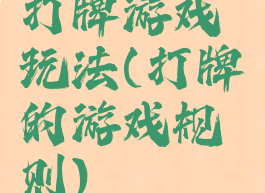 打牌游戏
玩法(打牌
的游戏规
则)